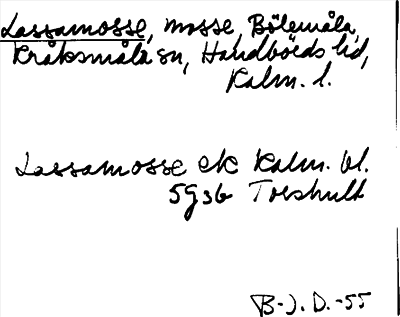 Lassamosse, mosse, Bölemåla,
Kråksmåla sn, Handbörds hd,
Kalm. l.
Lassamosse ek Kalm. bl.
5G3b Torshult
B-J. D. -55